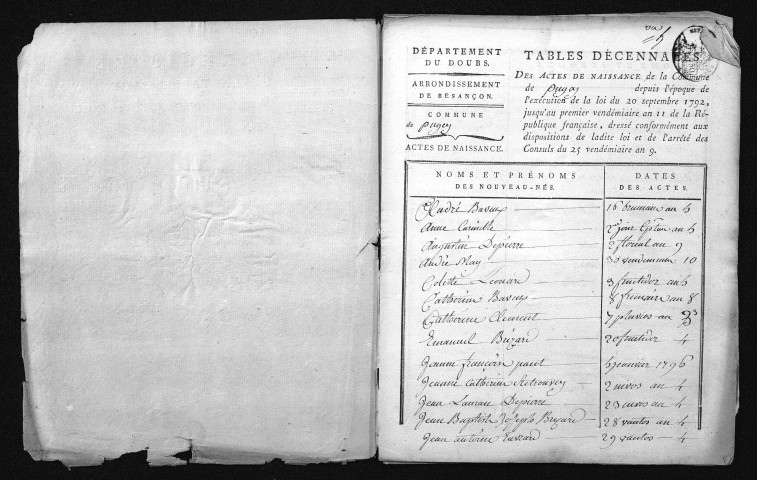 DÉPARTEMENT
DU DOUBS.
ARRONDISSEMENT
DE BESANÇON.
COMMUNE
de pugey
ACTES DE NAISSANCE.
TABLES DÉCENNALES
DES ACTES DE NAISSANCE de la Commune
de pugey depuis l'époque de
l'exécution de la loi du 20 septembre 1792,
jusqu'au premier vendémiaire an 11 de la Ré-
publique française, dressé conformément aux
dispositions de ladite loi et de l'arrêté des
Consuls du 25 vendémiaire an 9.
NOMS ET PRÉNOMS
DES NOUVEAU-NÉS.
DATES
DES ACTES.
André Baveux 16 brumaire an 5
Anne 2e jour an 5
Augustin Depierre 2 floreal an 9
André May 30 vendemiaire 10
Colette Leonard 9 fructidor an 5
Catherine Baveux 8 frimaire an 8
Catherine Clement 7 pluvios an 3
Emanuel Brezard 20 fructidor 4
Jeanne françoise janvier 1796
Jeanne Catherine 2 nivos an 4
Jean Laurant Depierre 23 nivos an 4
Jean Baptiste Joseph Brezard 28 vantos an 4
Jean antoine 29 vantos 4